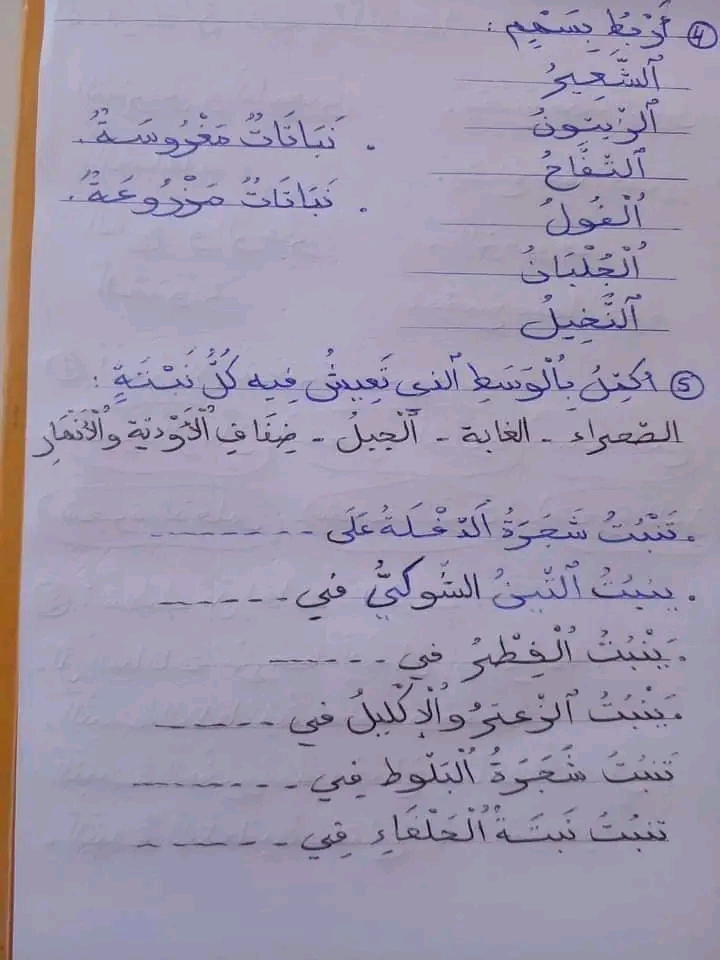 ④ أَرْبِطُ بِسَهْمٍ :
اَلشَّعِيرُ
اَلزَّيْتُونُ
. نَبَاتَاتٌ مَغْرُوسَةٌ.
اَلتُّفَّاحُ
. نَبَاتَاتٌ مَزْرُوعَةٌ.
اُلْفُولُ
اُلْجُلْبَانُ
اَلنَّخِيلُ
⑤ أكمِلُ بِالْوَسَطِ الذي تَعِيشُ فِيهِ كُلُّ نَبْتَةٍ :
الصّحراء - الغابة - اَلْجبلُ - ضِفَافِ الْأَوْدِيَةِ والْأَنهَارِ
. تَنْبُتُ شَجَرَةُ اَلدّفْلَةُ عَلَى --------
. ينبُتُ اَلتّينُ الشّوكيُّ في ------
. يَنْبُتُ اُلْفِطْرُ في ------
. يَنْبُتُ الزّعترُ والْإكْلِيلُ في ------
تَنبُتُ شَجَرَةُ اُلْبَلّوطِ فِي --------
تنبُتُ نَبتَةُ اُلْحَلْفَاءِ فِي ------